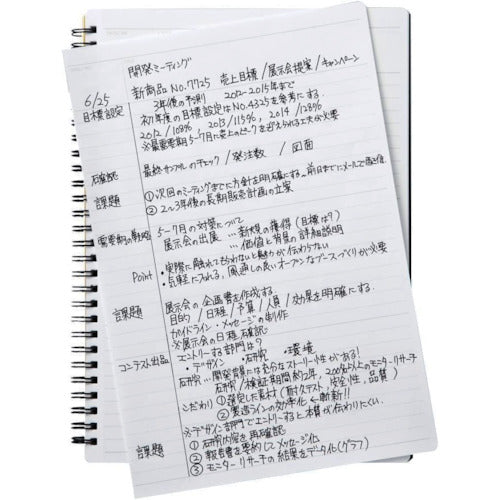 開発ミーティング
6/25 新商品No.7725 売上目標/展示会提案/キャンペーン
目標設定 3年後の予測 2012-2015年まで
初年度の目標設定はNo.4325を参考にする。
2012/108% 2013/115% 2014/128%
※最需要期5-7月に売上のピークを迎えられる工夫が必要
確認 最終サンプルのチェック/発注数/図面
課題 ①次回のミーティングまでに方針を明確にする。前日までにメールで返信
②2〜3年後の長期販売計画の立案
需要期の戦略 5-7月の対策について
展示会の出展 …新規の獲得(目標は?)
…価値と背景の詳細説明
Point ・実際に触れてもらわないと魅力が伝わらない
・気軽に入れる、風通しの良いオープンなブースづくりが必要
課題 展示会の企画書を作成する。
目的/日程/予算/人員/効果を明確にする。
ガイドライン・メッセージの制作
※展示会の日程確認
コンテスト出品 エントリーする部門は?
・デザイン ・研究 ・環境
研究…開発背景には充分なストーリー性がある!
研究/検証期間約2年、200名以上のモニターリサーチ
こだわり ①選定した素材(耐久テスト、安全性、品質)
②製造ラインの効率化 ←斬新!!
※デザイン部門でエントリーすると本質が伝わりにくい。
課題 ①研究内容を再確認
②報告書を要約してメッセージ化
③モニターリサーチの結果をデータ化(グラフ)